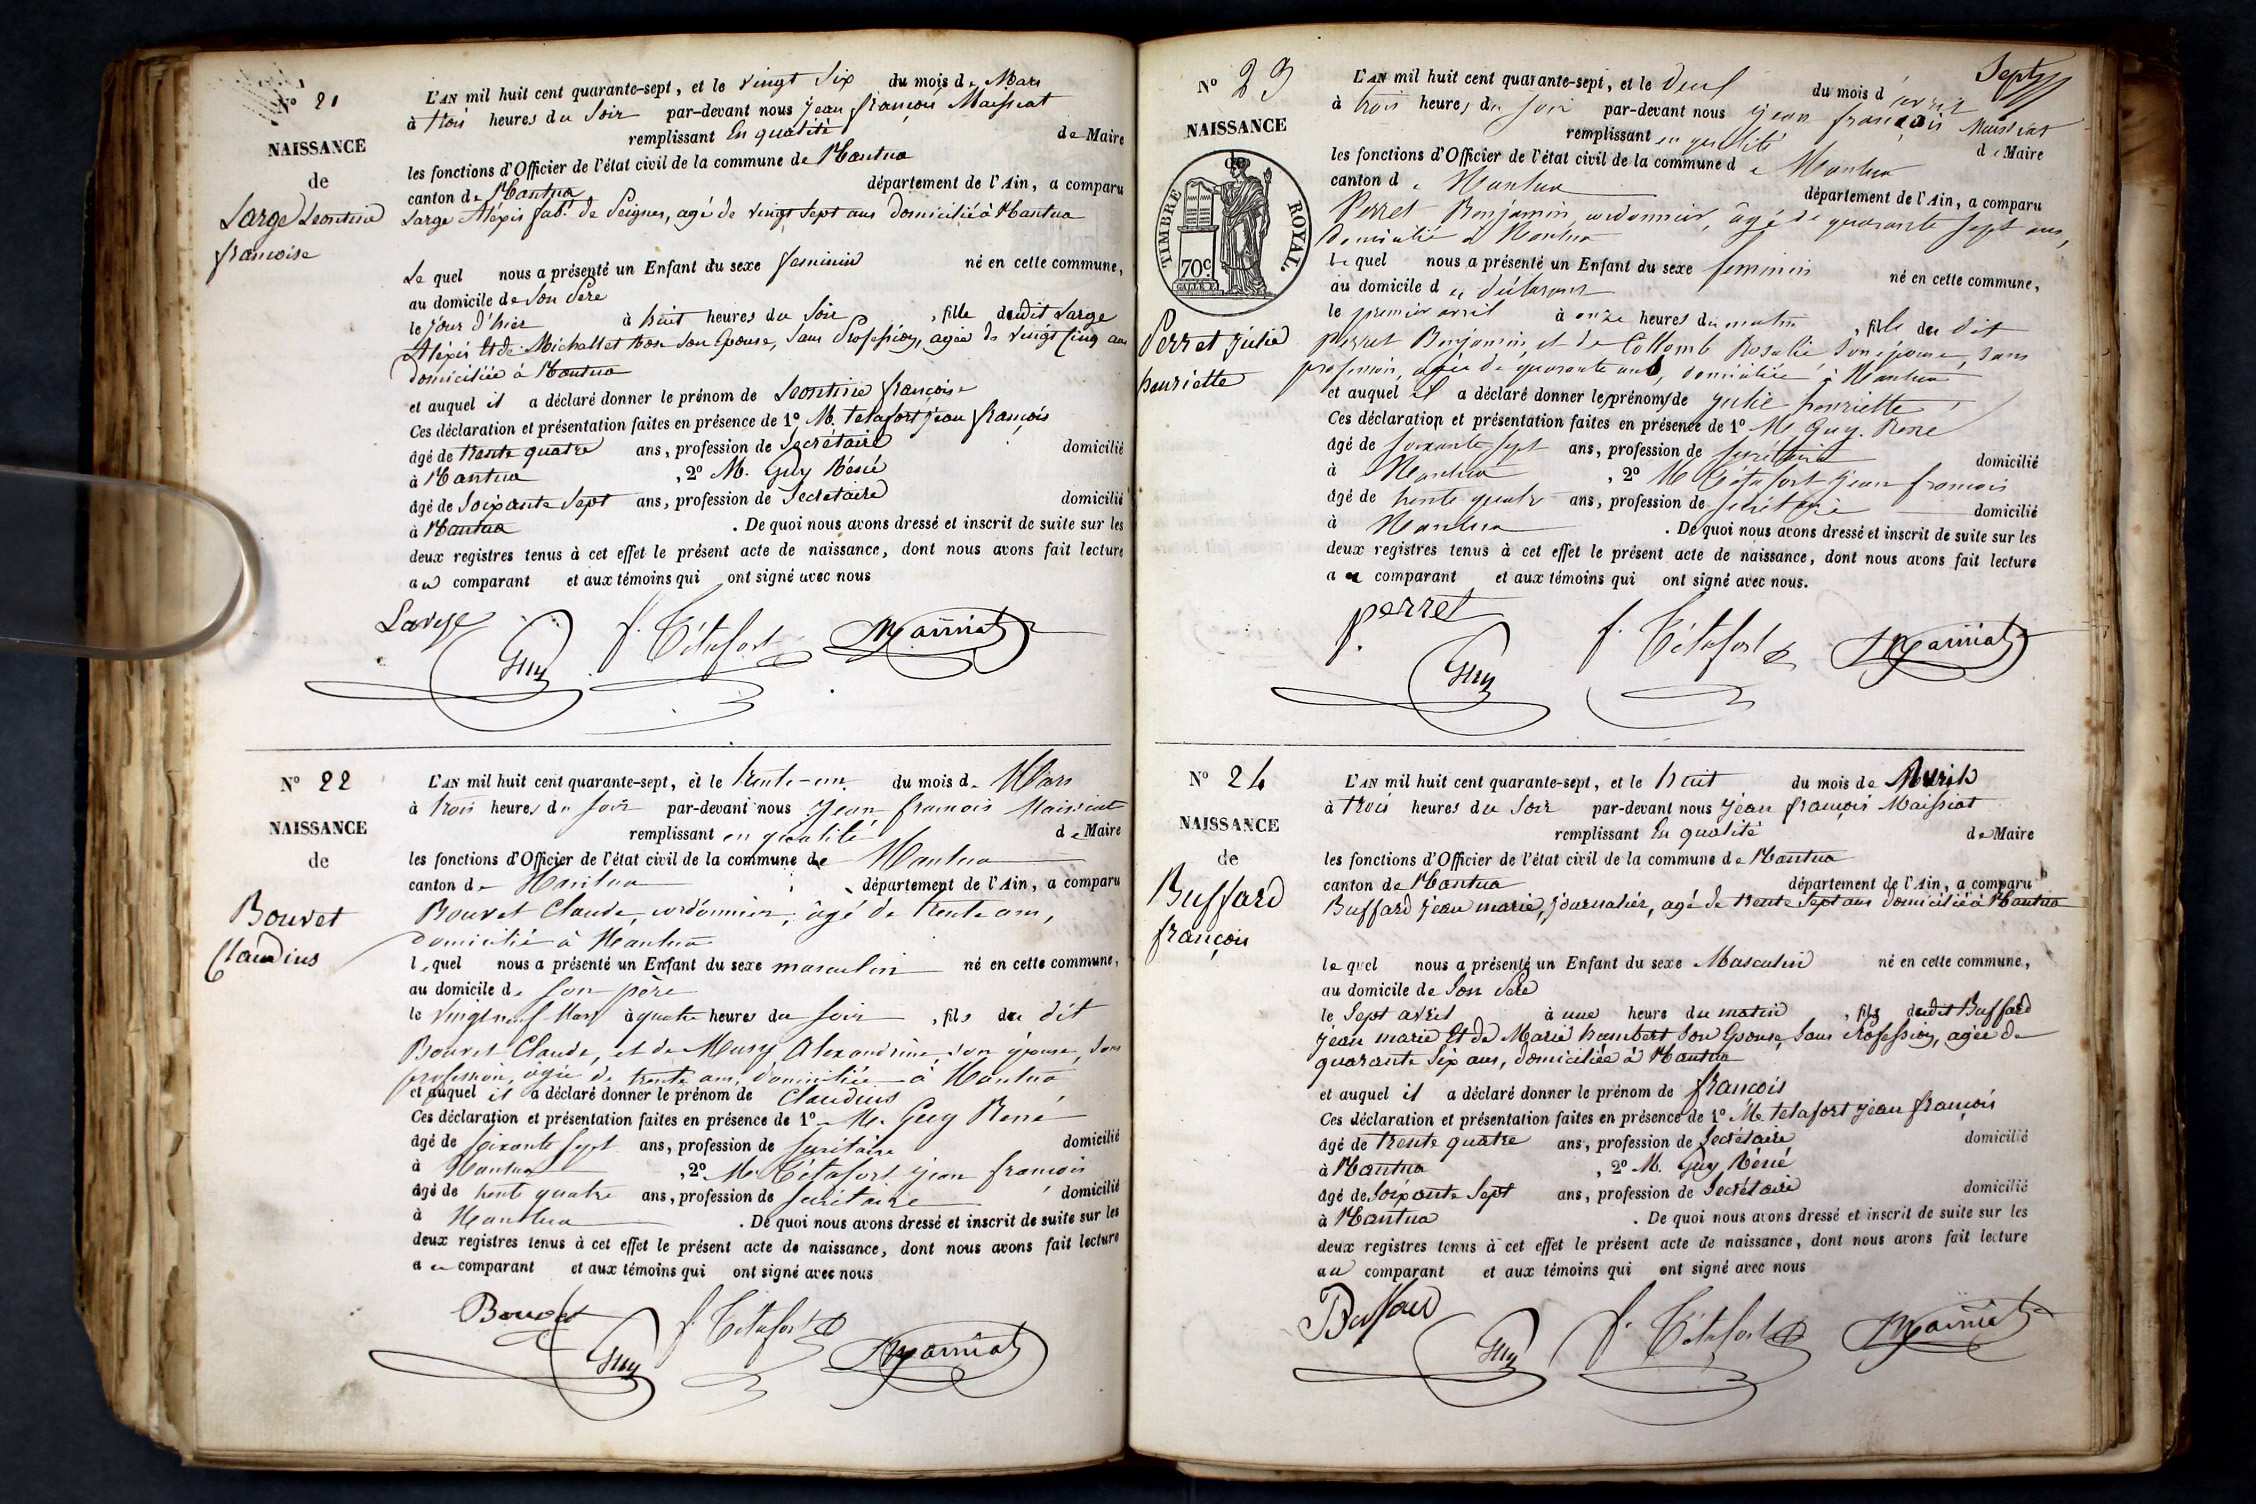 N° 21
NAISSANCE
de
Large Leontine
françoise
L'AN mil huit cent quarante-sept, et le vingt Six du mois de Mars
à trois heures du Soir par-devant nous jean françois Maissiat
remplissant En qualité de Maire
les fonctions d'Officier de l'état civil de la commune de Nantua
canton de Nantua département de l'Ain, a comparu
Large Aléxis fab.t de Peignes, agé de vingt Sept ans domicilié à Nantua
Le quel nous a présenté un Enfant du sexe feminin né en cette commune,
au domicile de Son Père
le jour d'hier à huit heures du Soir, fille dudit Large
Aléxis Et de Michallet Rose Son Epouse, Sans Profession, agée de vingt Cinq ans
domiciliée à Nantua
et auquel il a déclaré donner le prénom de Leontine françoise
Ces déclaration et présentation faites en présence de 1° M. tetafort jean françois
âgé de trente quatre ans, profession de Secrétaire domicilié
à Nantua, 2° M. Guy Réné
âgé de Soixante Sept ans, profession de Secretaire domicilié
à Nantua. De quoi nous avons dressé et inscrit de suite sur les
deux registres tenus à cet effet le présent acte de naissance, dont nous avons fait lecture
au comparant et aux témoins qui ont signé avec nous
Large Guy f. Tétafort Maissiat
N° 22
NAISSANCE
de
Bouvet
Claudius
L'AN mil huit cent quarante-sept, et le trente-un du mois de Mars
à trois heures du soir par-devant nous jean francois Maissiat
remplissant en qualité de Maire
les fonctions d'Officier de l'état civil de la commune de Nantua
canton de Nantua département de l'Ain, a comparu
Bouvet Claude, cordonnier, âgé de trente ans,
domicilié à Nantua
le quel nous a présenté un Enfant du sexe masculin né en cette commune,
au domicile de son père
le vingt neuf Mars à quatre heures du soir, fils du dit
Bouvet Claude, et de Musy Alexandrine, son épouse, sans
profession, agée de trente ans, domiciliée à Nantua
et auquel il a déclaré donner le prénom de Claudius
Ces déclaration et présentation faites en présence de 1° M. Guy René
âgé de soixante sept ans, profession de secrétaire domicilié
à Nantua, 2° M. Tétafort jean francois
âgé de trente quatre ans, profession de secrétaire domicilié
à Nantua. De quoi nous avons dressé et inscrit de suite sur les
deux registres tenus à cet effet le présent acte de naissance, dont nous avons fait lecture
au comparant et aux témoins qui ont signé avec nous
Bouvet Guy f. Tétafort Maissiat
Sept
N° 23
NAISSANCE
de
TIMBRE ROYAL.
70c
Perret julie
henriette
L'AN mil huit cent quarante-sept, et le deux du mois d'avril
à trois heures du soir par-devant nous jean françois Maissiat
remplissant en qualité de Maire
les fonctions d'Officier de l'état civil de la commune de Nantua
canton de Nantua département de l'Ain, a comparu
Perret Benjamin, cordonnier, âgé de quarante sept ans,
domicilié à Nantua
le quel nous a présenté un Enfant du sexe feminin né en cette commune,
au domicile du déclarant
le premier avril à onze heures du matin, fille du dit
perret Benjamin, et de Collomb Rosalie son épouse, sans
profession, agée de quarante ans, domiciliée à Nantua
et auquel il a déclaré donner les prénoms de julie henriette
Ces déclaration et présentation faites en présence de 1° M. Guy René
âgé de soixante sept ans, profession de secrétaire domicilié
à Nantua, 2° M. Tétafort jean francois
âgé de trente quatre ans, profession de secrétaire domicilié
à Nantua. De quoi nous avons dressé et inscrit de suite sur les
deux registres tenus à cet effet le présent acte de naissance, dont nous avons fait lecture
au comparant et aux témoins qui ont signé avec nous.
perret Guy f. Tétafort Maissiat
N° 24
NAISSANCE
de
Buffard
françois
L'AN mil huit cent quarante-sept, et le huit du mois de Avril
à trois heures du Soir par-devant nous jean françois Maissiat
remplissant En qualité de Maire
les fonctions d'Officier de l'état civil de la commune de Nantua
canton de Nantua département de l'Ain, a comparu
Buffard jean marie, journalier, agé de trente Sept ans domicilié à Nantua
le quel nous a présenté un Enfant du sexe Masculin né en cette commune,
au domicile de Son Père
le Sept avril à une heure du matin, fils dudit Buffard
jean marie Et de Marie humbert Son Epouse, Sans Profession, agée de
quarante Six ans, domiciliée à Nantua
et auquel il a déclaré donner le prénom de françois
Ces déclaration et présentation faites en présence de 1° M. tetafort jean françois
âgé de trente quatre ans, profession de Secrétaire domicilié
à Nantua, 2° M. Guy Réné
âgé de Soixante Sept ans, profession de Secrétaire domicilié
à Nantua. De quoi nous avons dressé et inscrit de suite sur les
deux registres tenus à cet effet le présent acte de naissance, dont nous avons fait lecture
au comparant et aux témoins qui ont signé avec nous
Buffard Guy f. Tétafort Maissiat